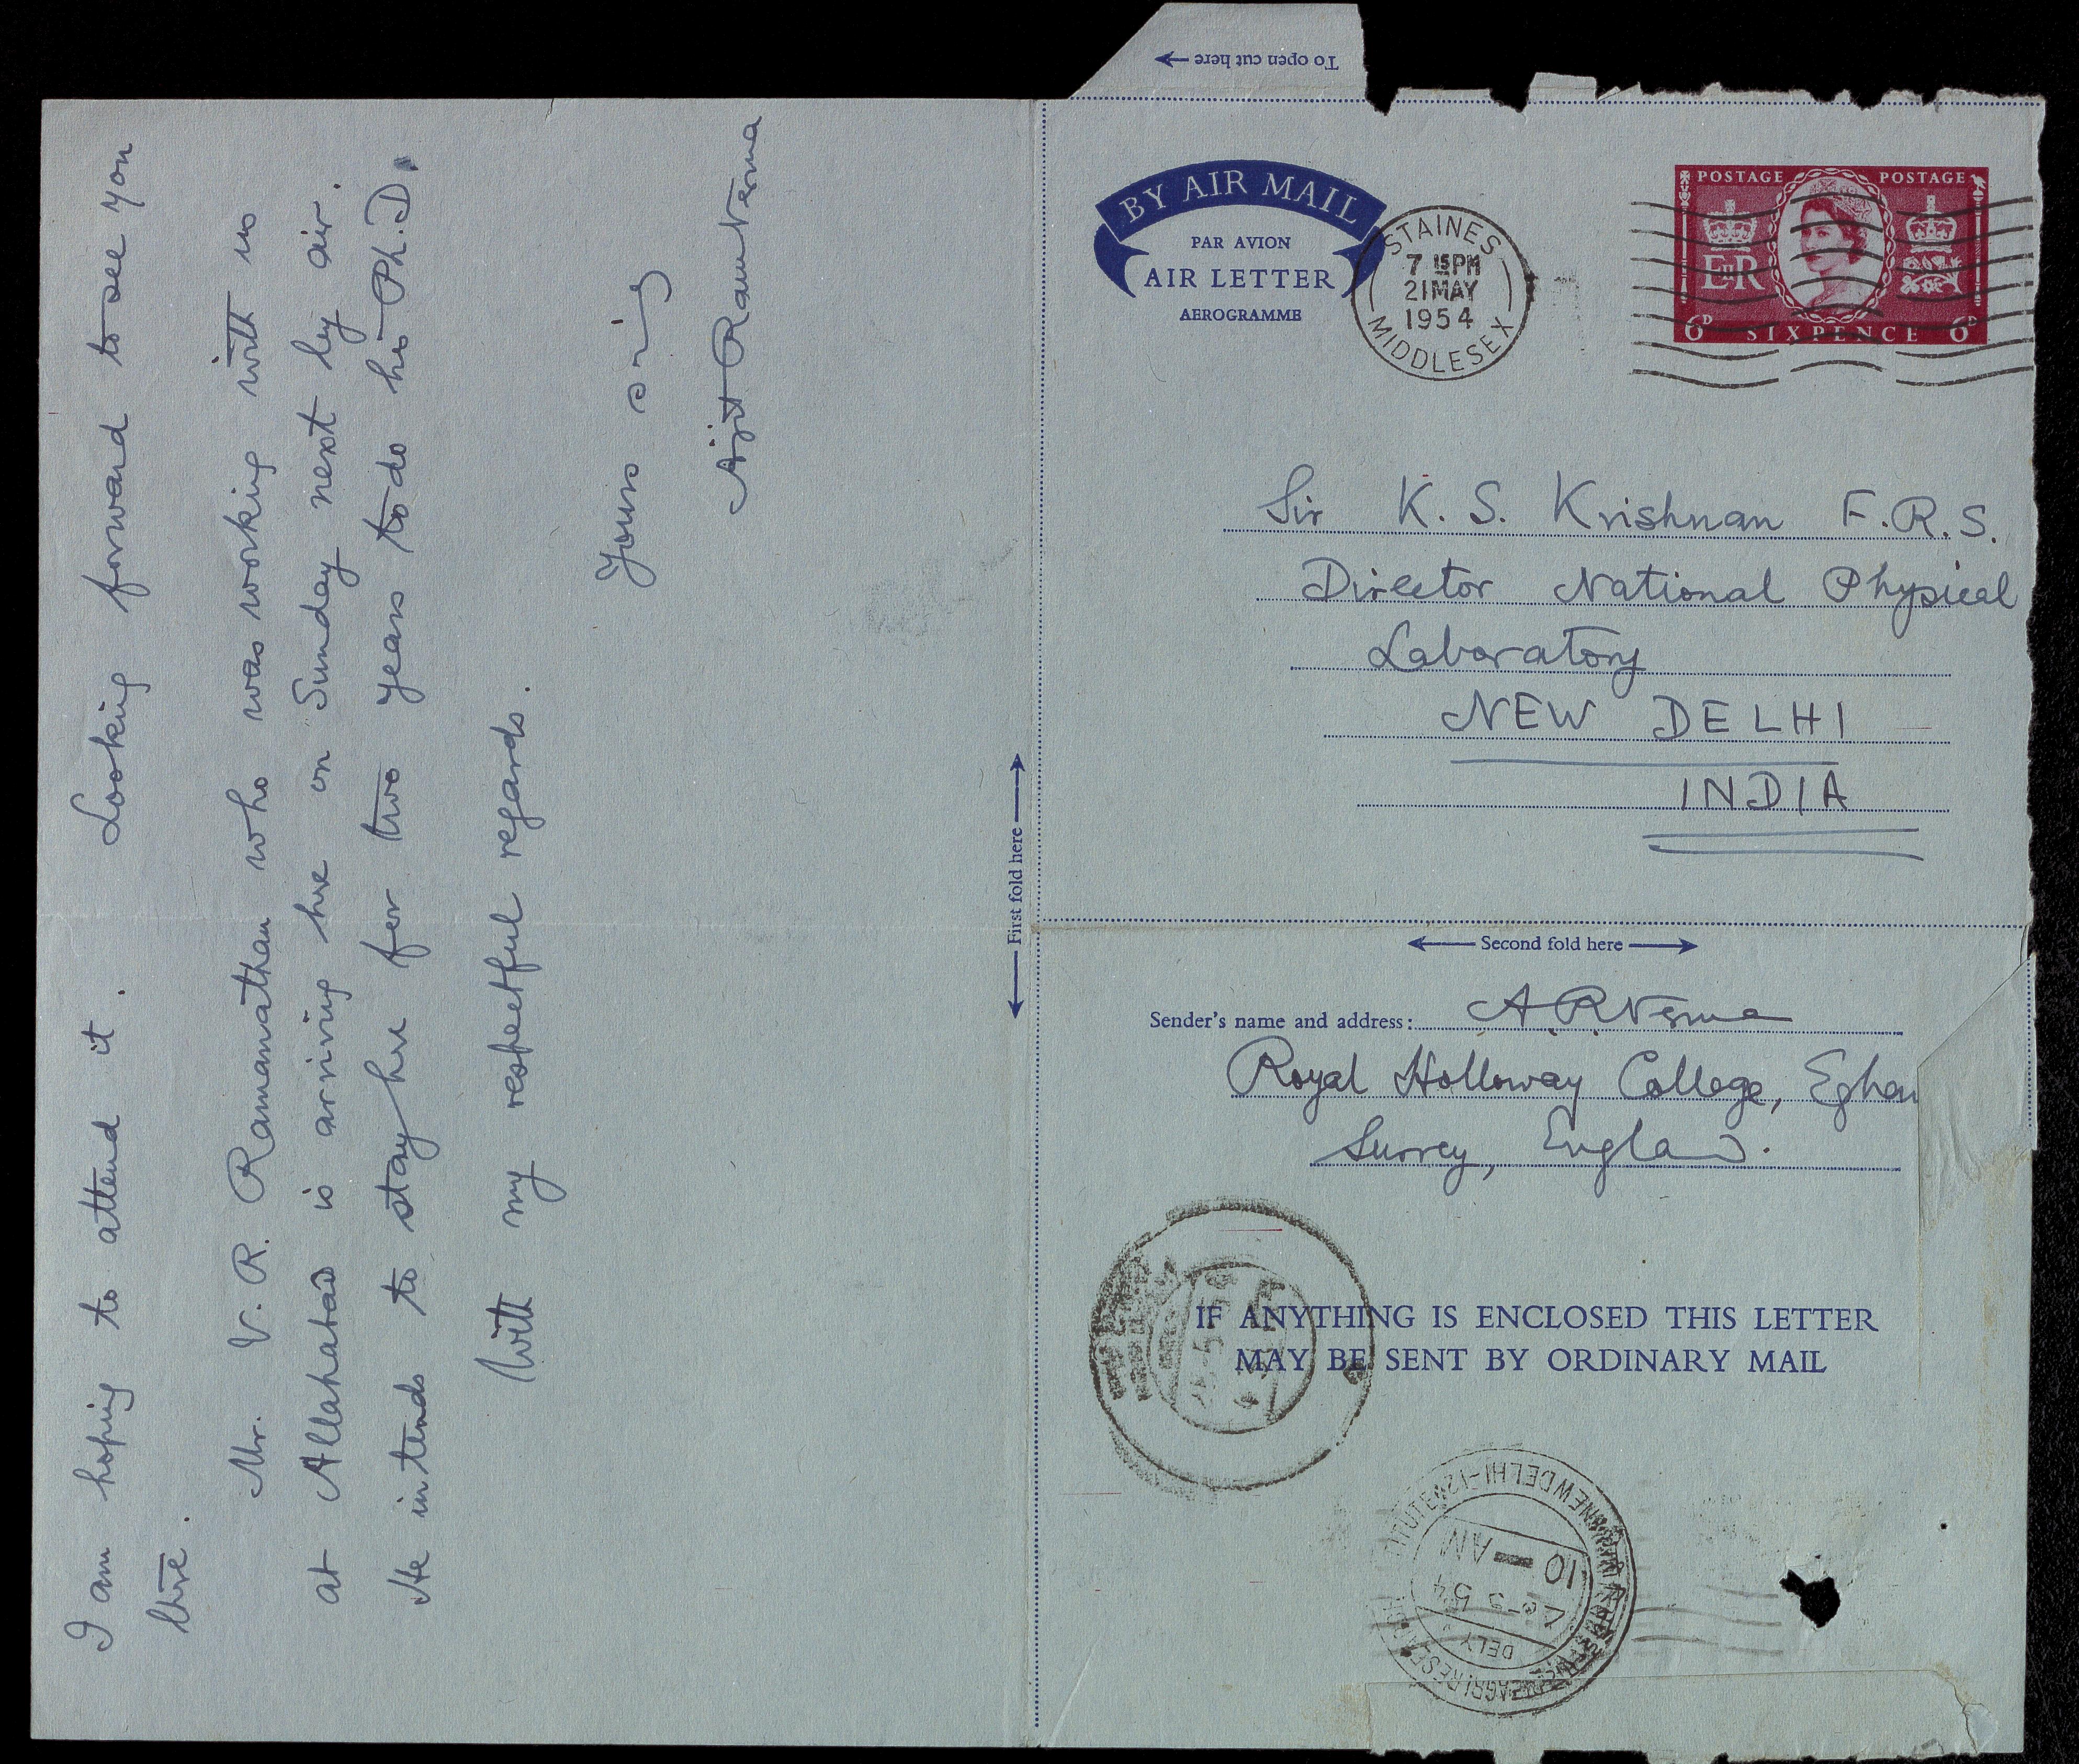 I am hoping to attend it. Looking forward to see you
there.
Mr. V. R. Ramanathan who was working with us
at Allahabad is arriving here on Sunday next by air.
He intends to stay here for two years to do his Ph.D.
With my respectful regards.
Yours
Ajit Ram Verma
To open cut here
BY AIR MAIL
PAR AVION
AIR LETTER
AEROGRAMME
STAINES
7 15 PM
21 MAY
1954
MIDDLESEX
POSTAGE POSTAGE
E II R
6D SIXPENCE 6D
Sir K. S. Krishnan F.R.S.
Director National Physical
Laboratory
NEW DELHI
INDIA
First fold here
Second fold here
Sender's name and address: A. R. Verma
Royal Holloway College, Egham
Surrey, England.
IF ANYTHING IS ENCLOSED THIS LETTER
MAY BE SENT BY ORDINARY MAIL
NEW DELHI-12
10 — AM
54
DELY